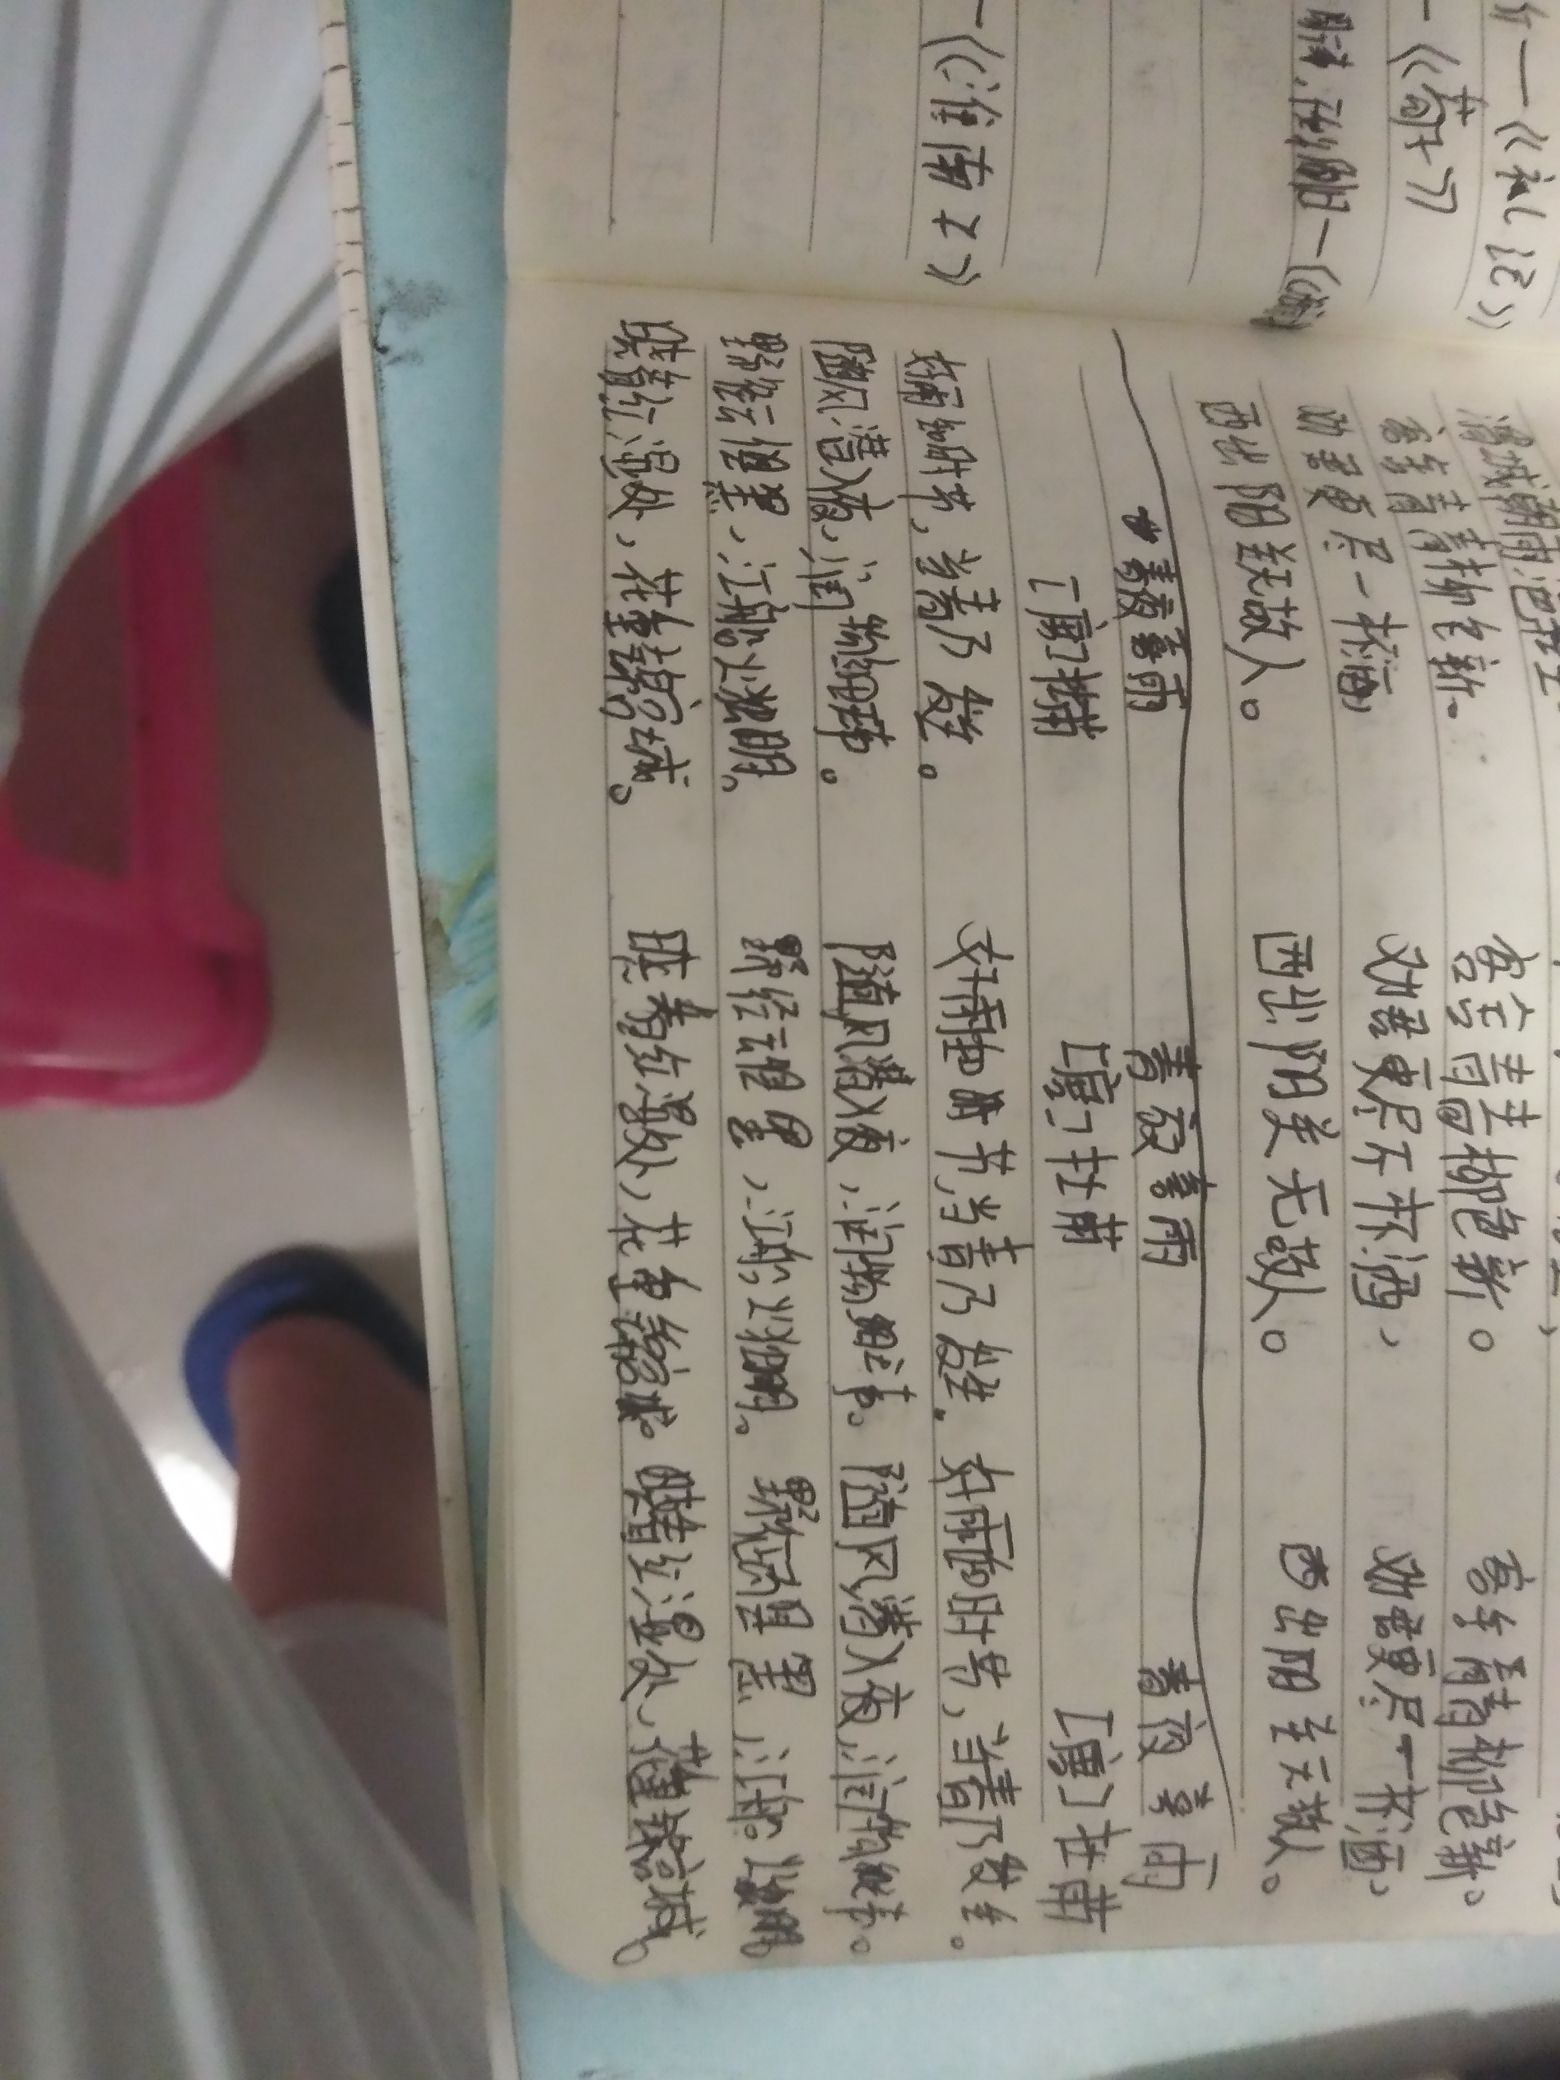 介一《礼记》
一《荀子》
一《淮南子》
客舍青青柳色新。 客舍青青柳色新。 客舍青青柳色新。
劝君更尽一杯酒, 劝君更尽一杯酒, 劝君更尽一杯酒,
西出阳关无故人。 西出阳关无故人。 西出阳关无故人。
春夜喜雨 春夜喜雨 春夜喜雨
[唐]杜甫 [唐]杜甫 [唐]杜甫
好雨知时节,当春乃发生。 好雨知时节,当春乃发生。 好雨知时节,当春乃发生。
随风潜入夜,润物细无声。 随风潜入夜,润物细无声。 随风潜入夜,润物细无声。
野径云俱黑,江船火独明。 野径云俱黑,江船火独明。 野径云俱黑,江船火独明
晓看红湿处,花重锦官城。 晓看红湿处,花重锦官城。 晓看红湿处,花重锦官城。